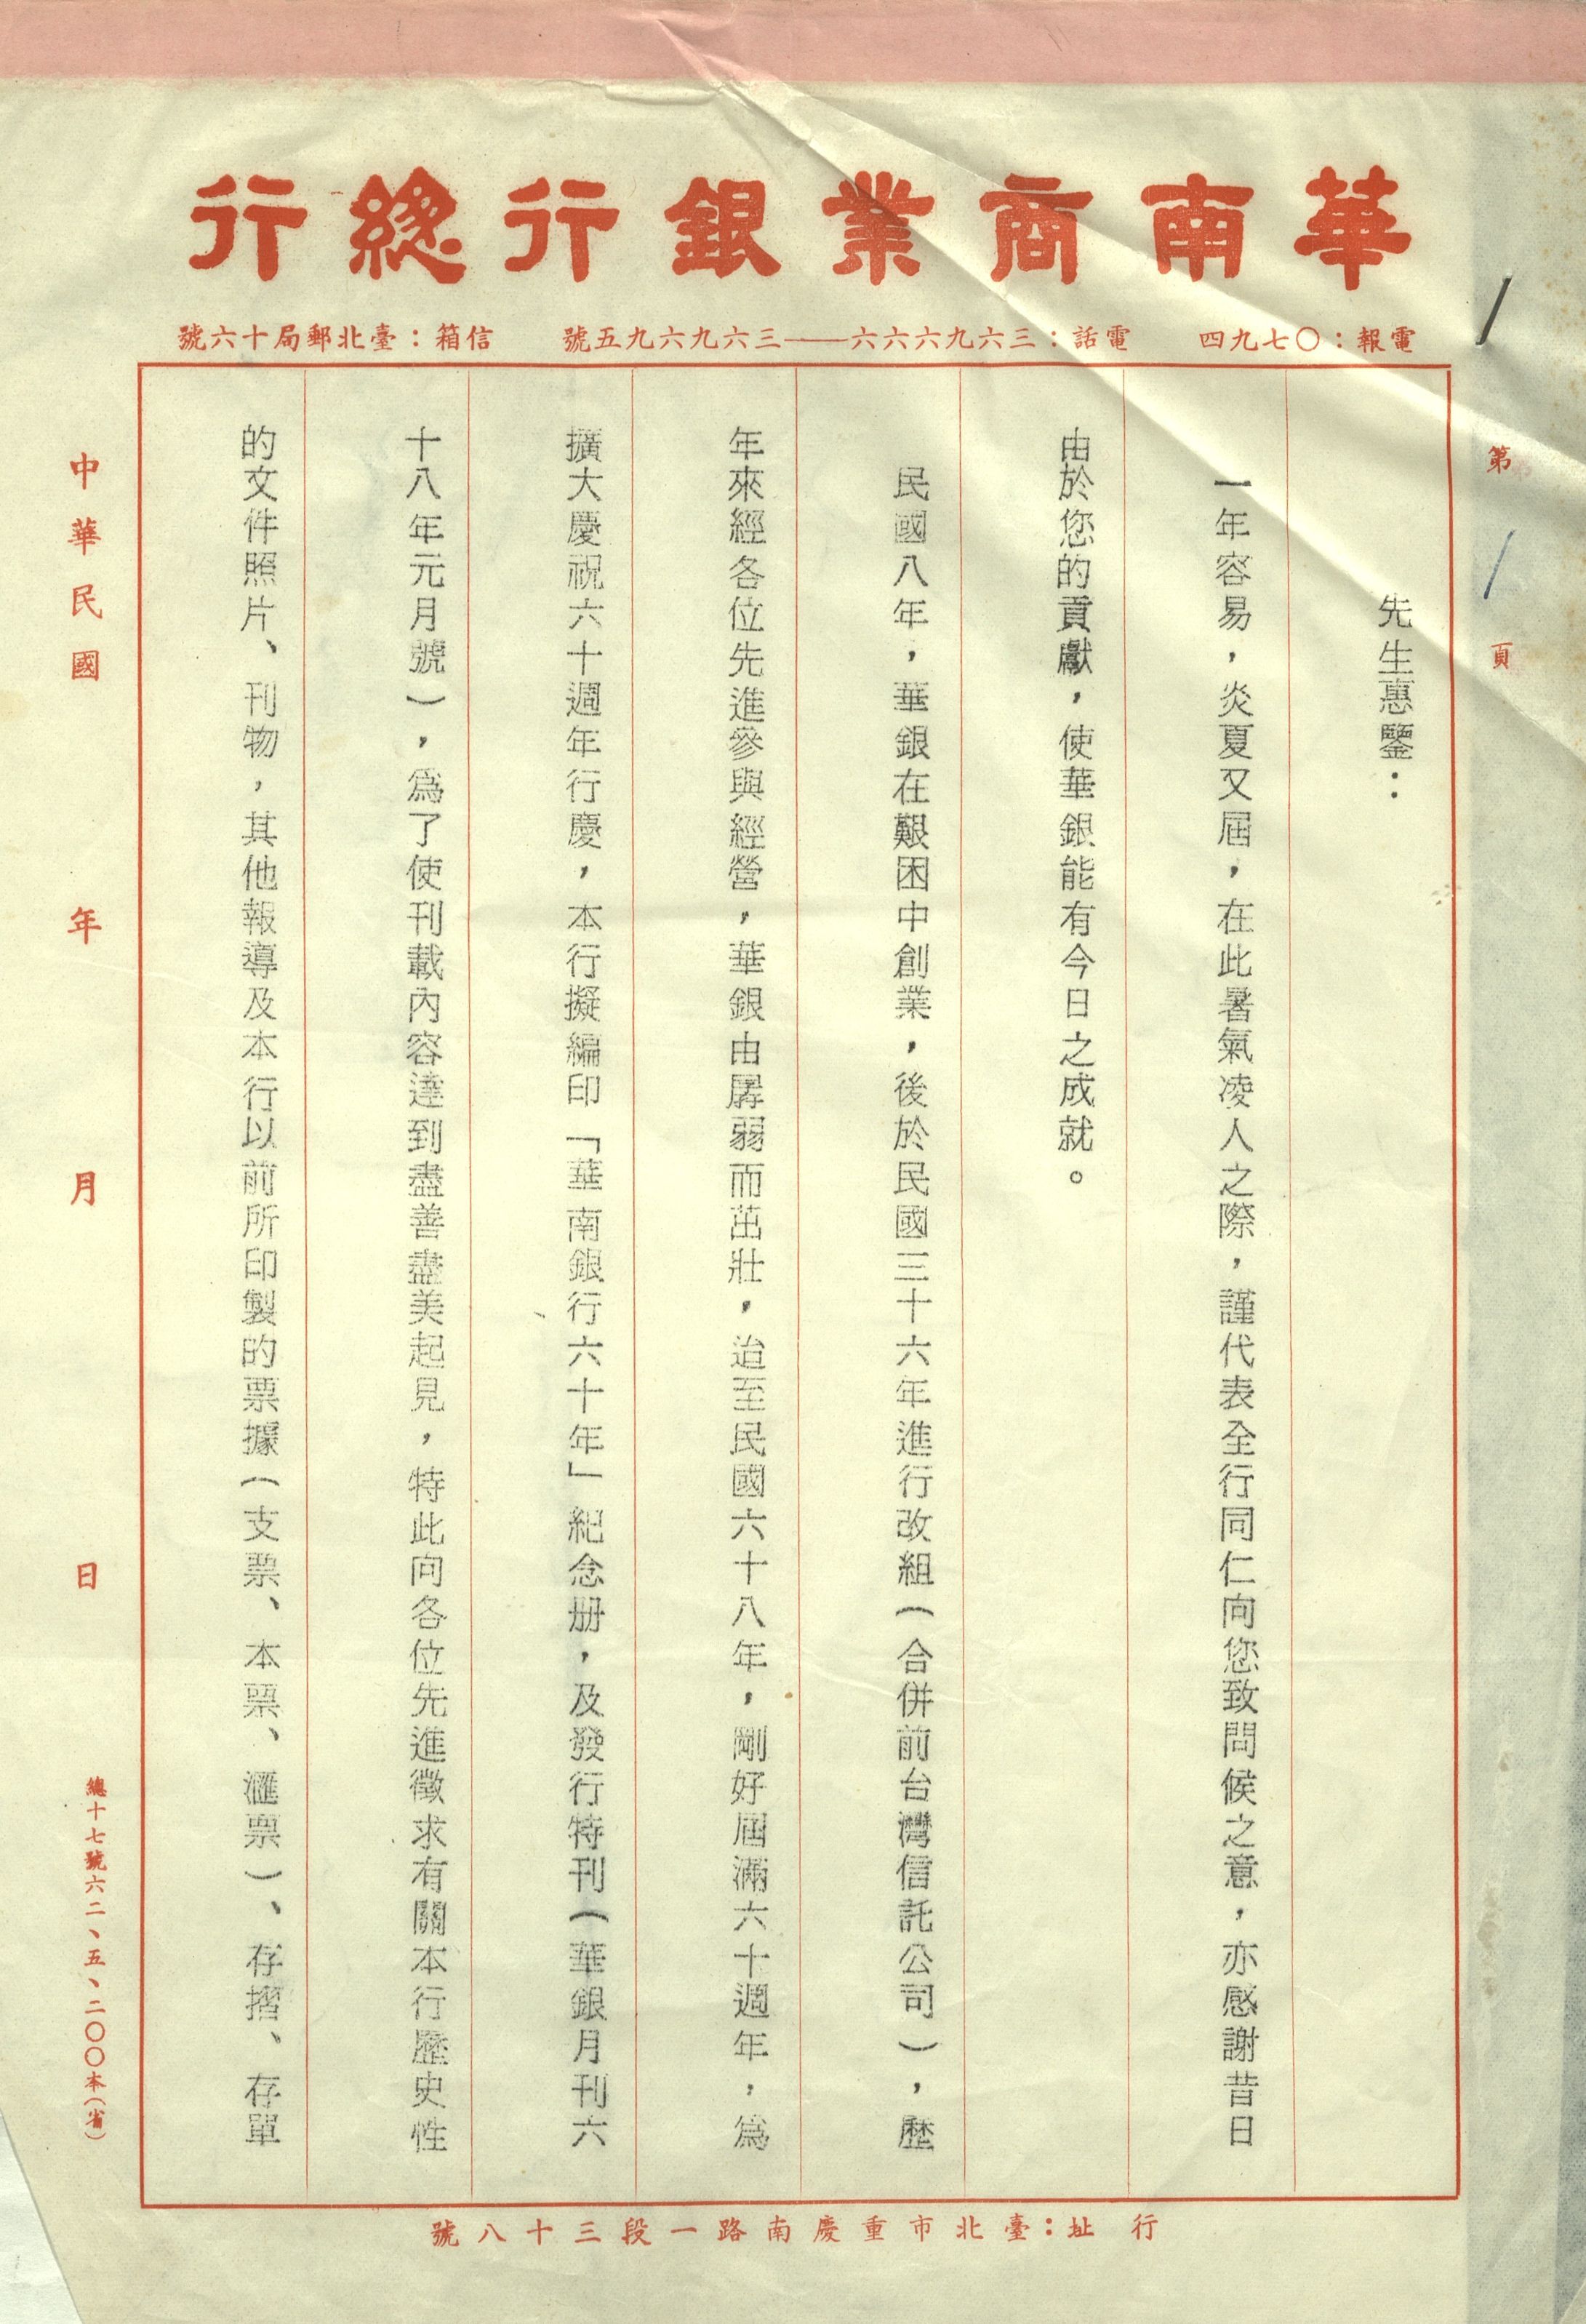 華南商業銀行總行
電報：〇七九四
電話：三六九六六六——三六九六九五號
信箱：臺北郵局十六號
第1頁
先生惠鑒：
一年容易，炎夏又屆，在此暑氣凌人之際，謹代表全行同仁向您致問候之意，亦感謝昔日
由於您的貢獻，使華銀能有今日之成就。
民國八年，華銀在艱困中創業，後於民國三十六年進行改組(合併前台灣信託公司)，歷
年來經各位先進參與經營，華銀由孱弱而茁壯，迨至民國六十八年，剛好屆滿六十週年，為
擴大慶祝六十週年行慶，本行擬編印「華南銀行六十年」紀念册，及發行特刊(華銀月刊六
十八年元月號)，為了使刊載內容達到盡善盡美起見，特此向各位先進徵求有關本行歷史性
的文件照片、刊物，其他報導及本行以前所印製的票據(支票、本票、滙票)、存摺、存單
中華民國 年 月 日
總十七號六二、五、二〇〇本(省)
行址：臺北市重慶南路一段三十八號